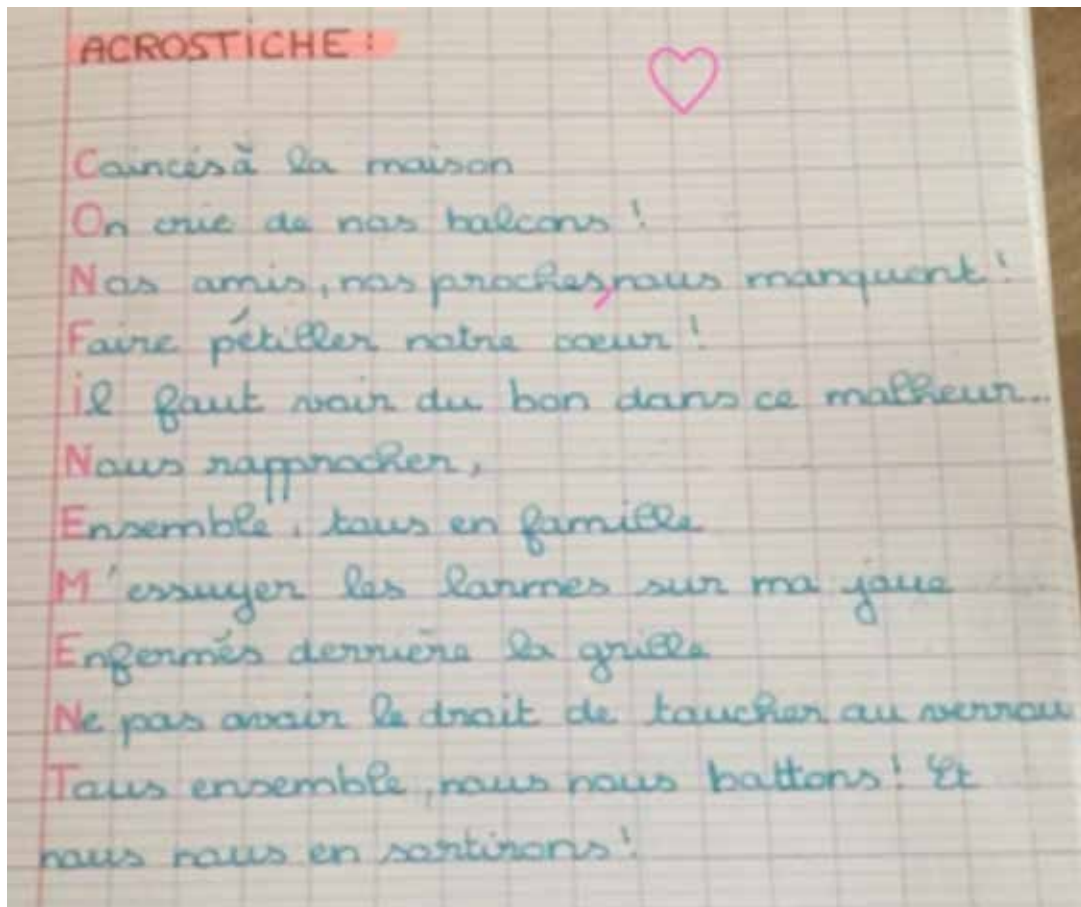 ACROSTICHE :
Coincés à la maison
On crie de nos balcons !
Nos amis, nos proches, nous manquent !
Faire pétiller notre coeur !
il faut voir du bon dans ce malheur...
Nous rapprocher,
Ensemble, tous en famille
M'essuyer les larmes sur ma joue
Enfermés derrière la grille
Ne pas avoir le droit de toucher au verrou
Tous ensemble, nous nous battons ! Et
nous nous en sortirons !